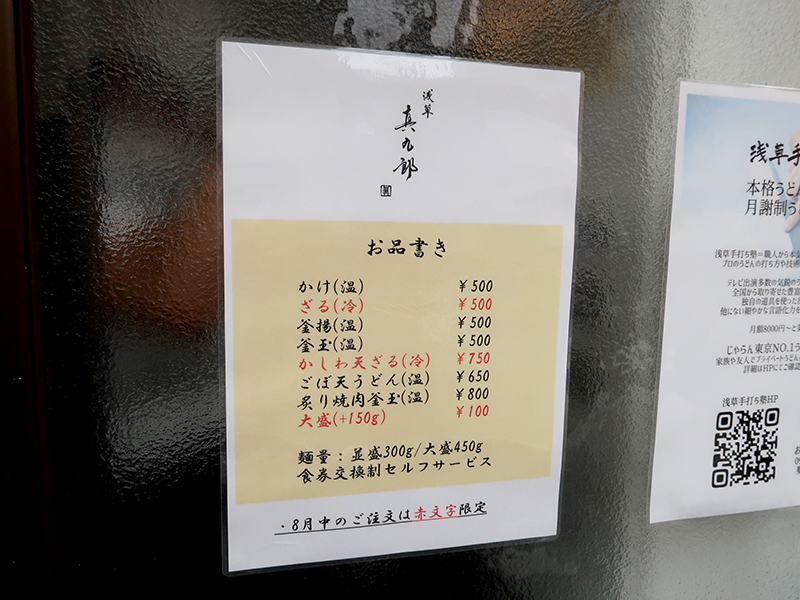 浅草
真九郎
お品書き
かけ(温) ¥500
ざる(冷) ¥500
釜揚(温) ¥500
釜玉(温) ¥500
かしわ天ざる(冷) ¥750
ごぼ天うどん(温) ¥650
炙り焼肉釜玉(温) ¥800
大盛(+150g) ¥100
麺量：並盛300g/大盛450g
食券交換制セルフサービス
・8月中のご注文は赤文字限定
浅草手
本格うどん
月謝制う
浅草手打ち塾=職人から本
プロのうどんの打ち方や技術
テレビ出演多数の気鋭のう
全国から取り寄せた豊富
独自の道具を使った
他にない細やかな言語化力を
月額8000円〜と
じゃらん東京NO.1う
家族や友人でプライベートうどん
詳細はHPにてご確認
浅草手打ち塾HP